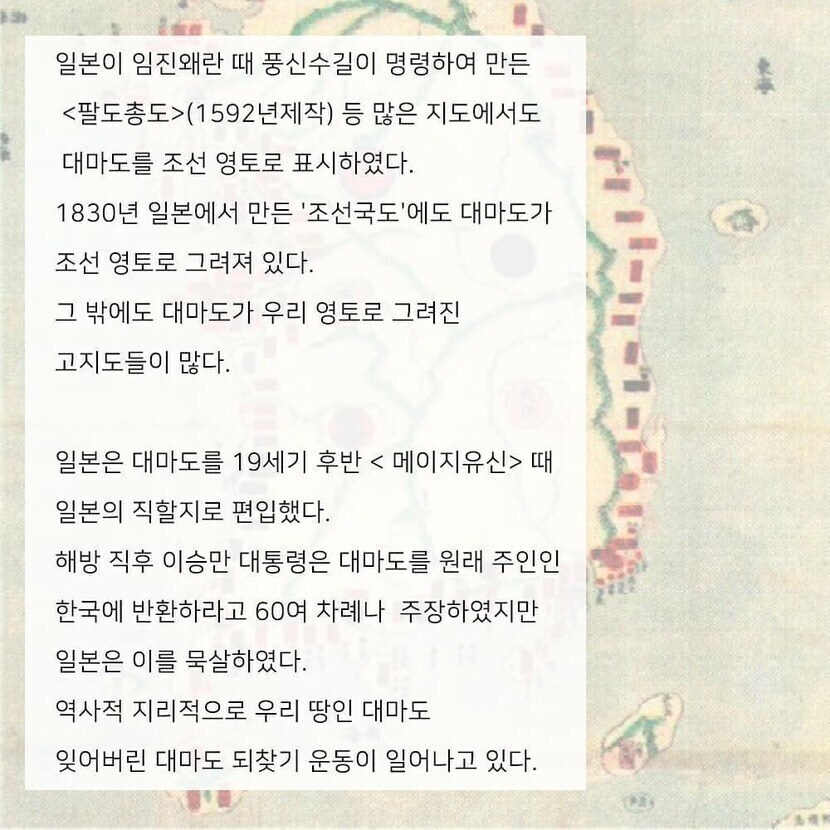 일본이 임진왜란 때 풍신수길이 명령하여 만든
<팔도총도>(1592년제작) 등 많은 지도에서도
대마도를 조선 영토로 표시하였다.
1830년 일본에서 만든 '조선국도'에도 대마도가
조선 영토로 그려져 있다.
그 밖에도 대마도가 우리 영토로 그려진
고지도들이 많다.
일본은 대마도를 19세기 후반 < 메이지유신> 때
일본의 직할지로 편입했다.
해방 직후 이승만 대통령은 대마도를 원래 주인인
한국에 반환하라고 60여 차례나 주장하였지만
일본은 이를 묵살하였다.
역사적 지리적으로 우리 땅인 대마도
잊어버린 대마도 되찾기 운동이 일어나고 있다.